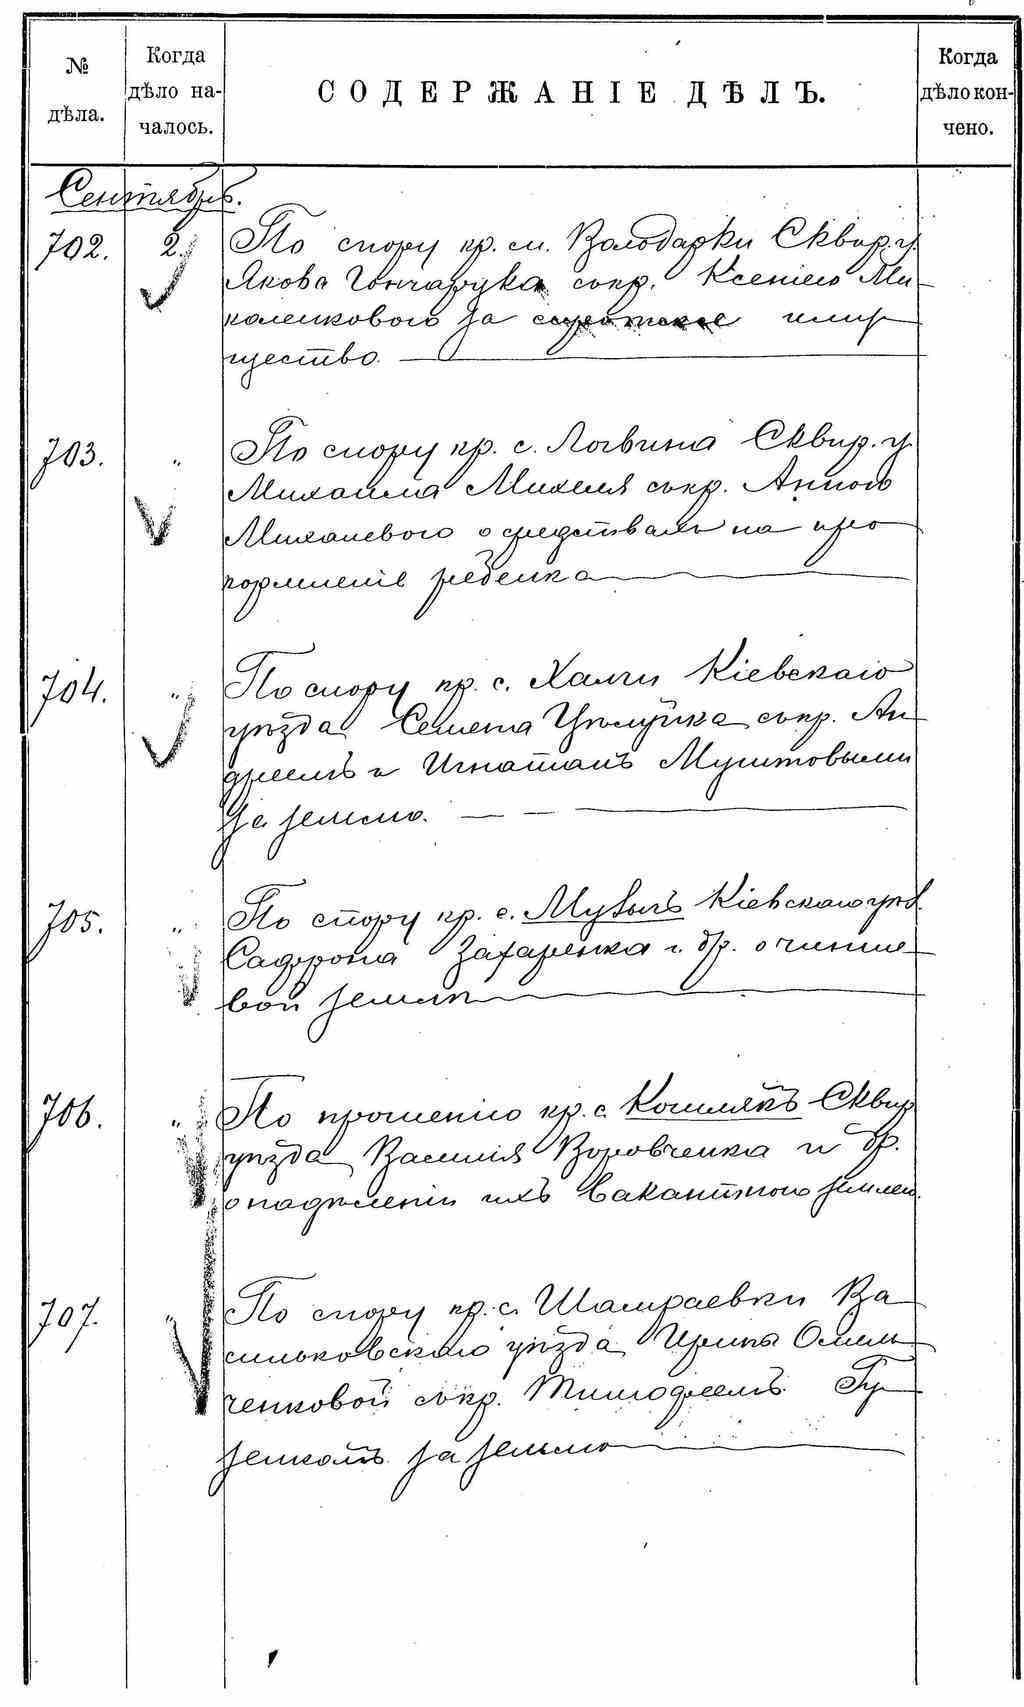 № дѣла.
Когда дѣло на-чалось.
СОДЕРЖАНІЕ ДѢЛЪ.
Когда дѣло кон-чено.
Сентябрь.
702. 2. По спору кр. м. Володарки Сквир. у.
Якова Гончарука съ кр. Ксеніею Ми-
коленковою за сиротское иму-
щество.
703. " По спору кр. с. Логвина Сквир. у.
Михаила Михеля съ кр. Анною
о средствахъ на про
кормленіе ребенка
704. " По спору кр. с. Халчи Кіевскаго
уѣзда Семена Цѣлуйка съ кр. Ан-
дреемъ и Игнатомъ
за землю.
705. " По спору кр. с. Музычъ Кіевскаго уѣз.
Сафрона Захаренка и др. о чинше-
вой землѣ
706. " По прошенію кр. с. Кошлякъ Сквир
уѣзда Василія Воровченка и др.
о надѣленіи ихъ вакантною землею.
707. " По спору кр. с. Шамраевки Ва-
сильковскаго уѣзда Ирины Омель-
ченковой съ кр. Тимофеемъ Гу-
зенкомъ за землю